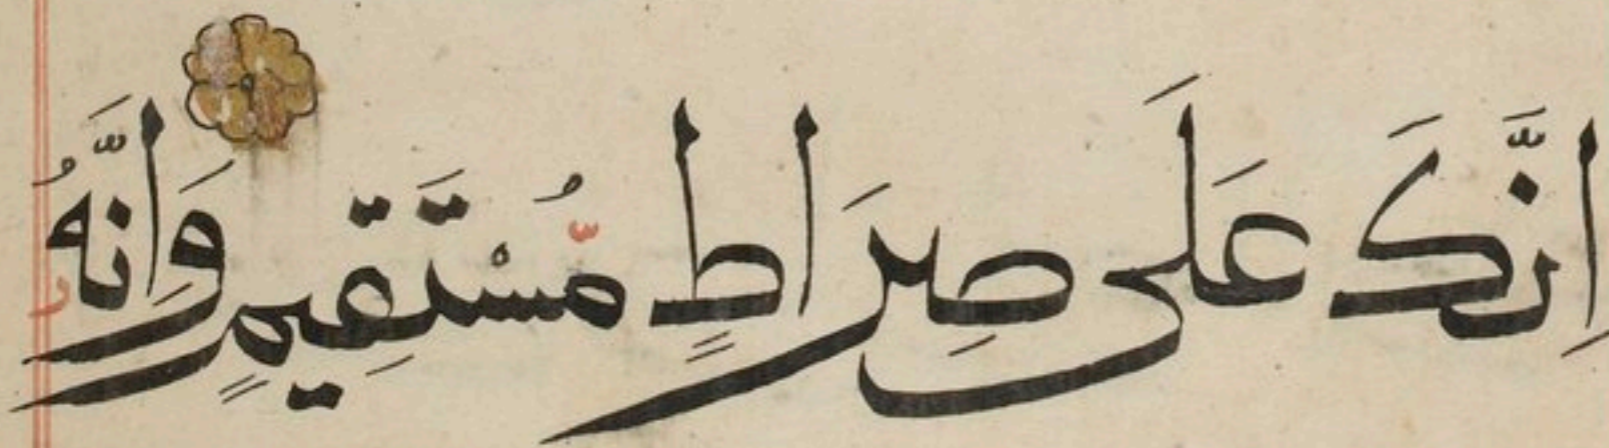 اِنَّكَ عَلَى صِرَاطٍ مُّسْتَقِيمٍ وَاِنَّهُ